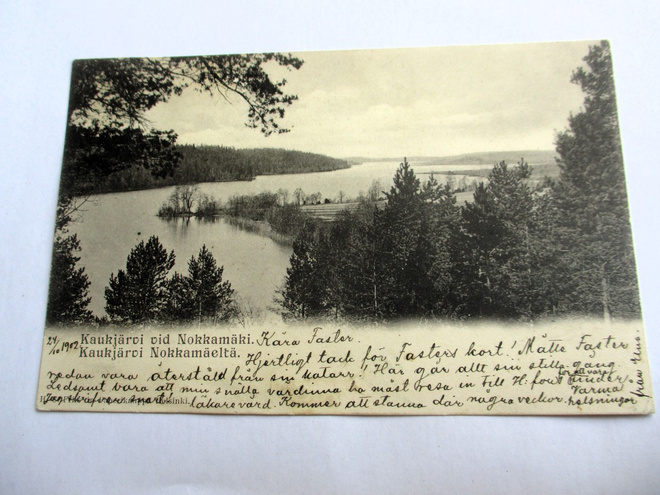 24/10 1902
Kaukjärvi vid Nokkamäki. Kära Faster.
Kaukjärvi Nokkamäeltä. Hjertligt tack för Fasters kort! Måtte Faster
redan vara återställd från sin katarr! Här går allt sin stilla gång.
Ledsamt vara att min snälla värdinna ha måst resa in till H:fors för att vara under
läkarevård. Kommer att stanna där några veckor.
Jag skrifver snart.
Varma
helsningar
från